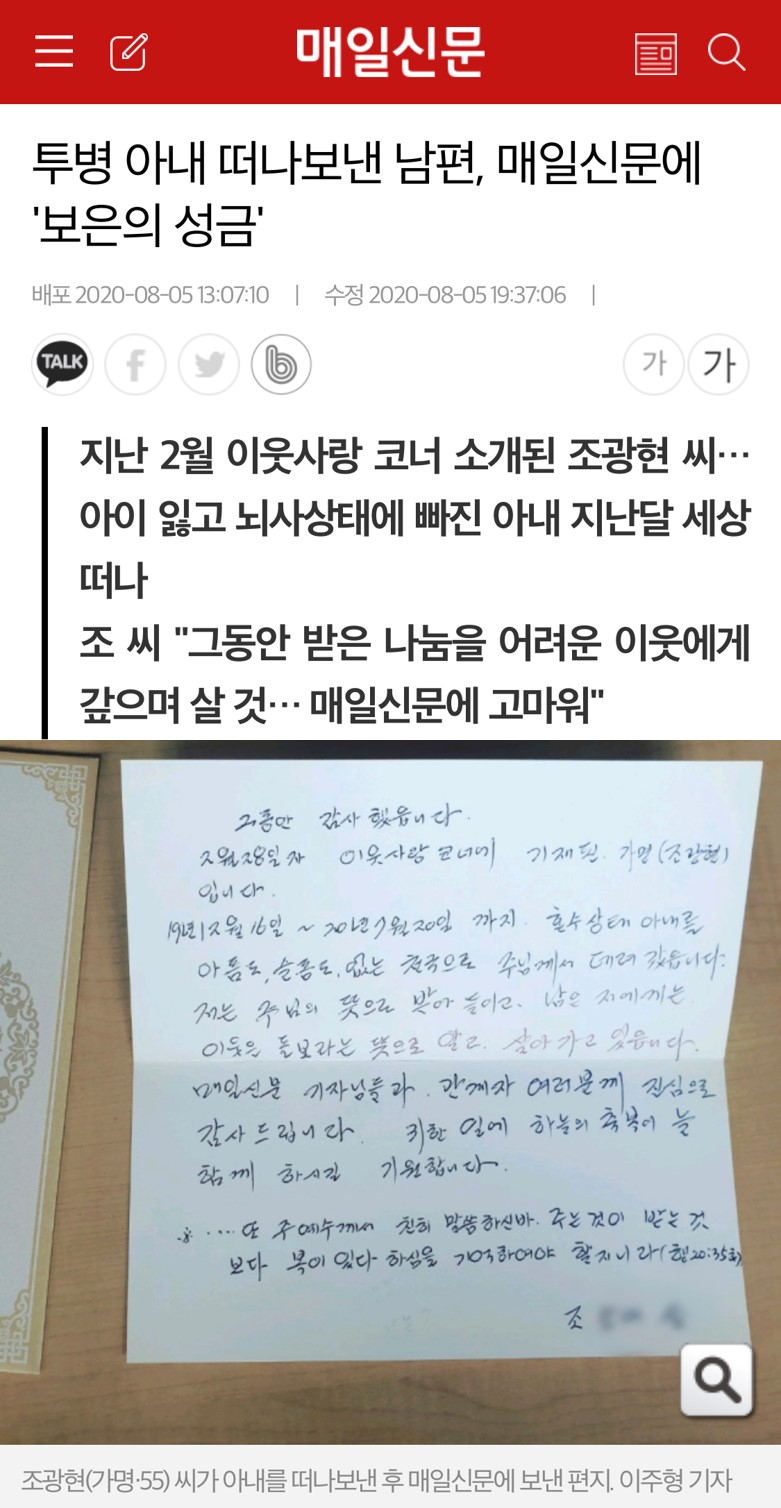 매일신문
투병 아내 떠나보낸 남편, 매일신문에
'보은의 성금'
배포 2020-08-05 13:07:10 | 수정 2020-08-05 19:37:06 |
TALK f b 가 가
지난 2월 이웃사랑 코너 소개된 조광현 씨…
아이 잃고 뇌사상태에 빠진 아내 지난달 세상
떠나
조 씨 "그동안 받은 나눔을 어려운 이웃에게
갚으며 살 것… 매일신문에 고마워"
그동안 감사 했읍니다.
2월28일자 이웃사랑 코너에 기재된. 가명(조광현)
입니다.
19년12월16일 ~ 20년7월20일 까지. 혼수상태 아내를
아픔도, 슬픔도, 없는 천국으로 주님께서 데려 갔읍니다.
저는 주님의 뜻으로 받아 들이고. 남은 저에게는
이웃을 돌보라는 뜻으로 알고. 살아가고 있읍니다.
매일신문 기자님들과. 관계자 여러분께 진심으로
감사드립니다. 귀한 일에 하늘의 축복이 늘
함께 하시길 기원합니다.
※ .... 또 주 예수께서 친히 말씀하신바. 주는것이 받는 것
보다 복이 있다 하심을 기억하여야 할지니라(행20:35하)
조
조광현(가명·55) 씨가 아내를 떠나보낸 후 매일신문에 보낸 편지. 이주형 기자